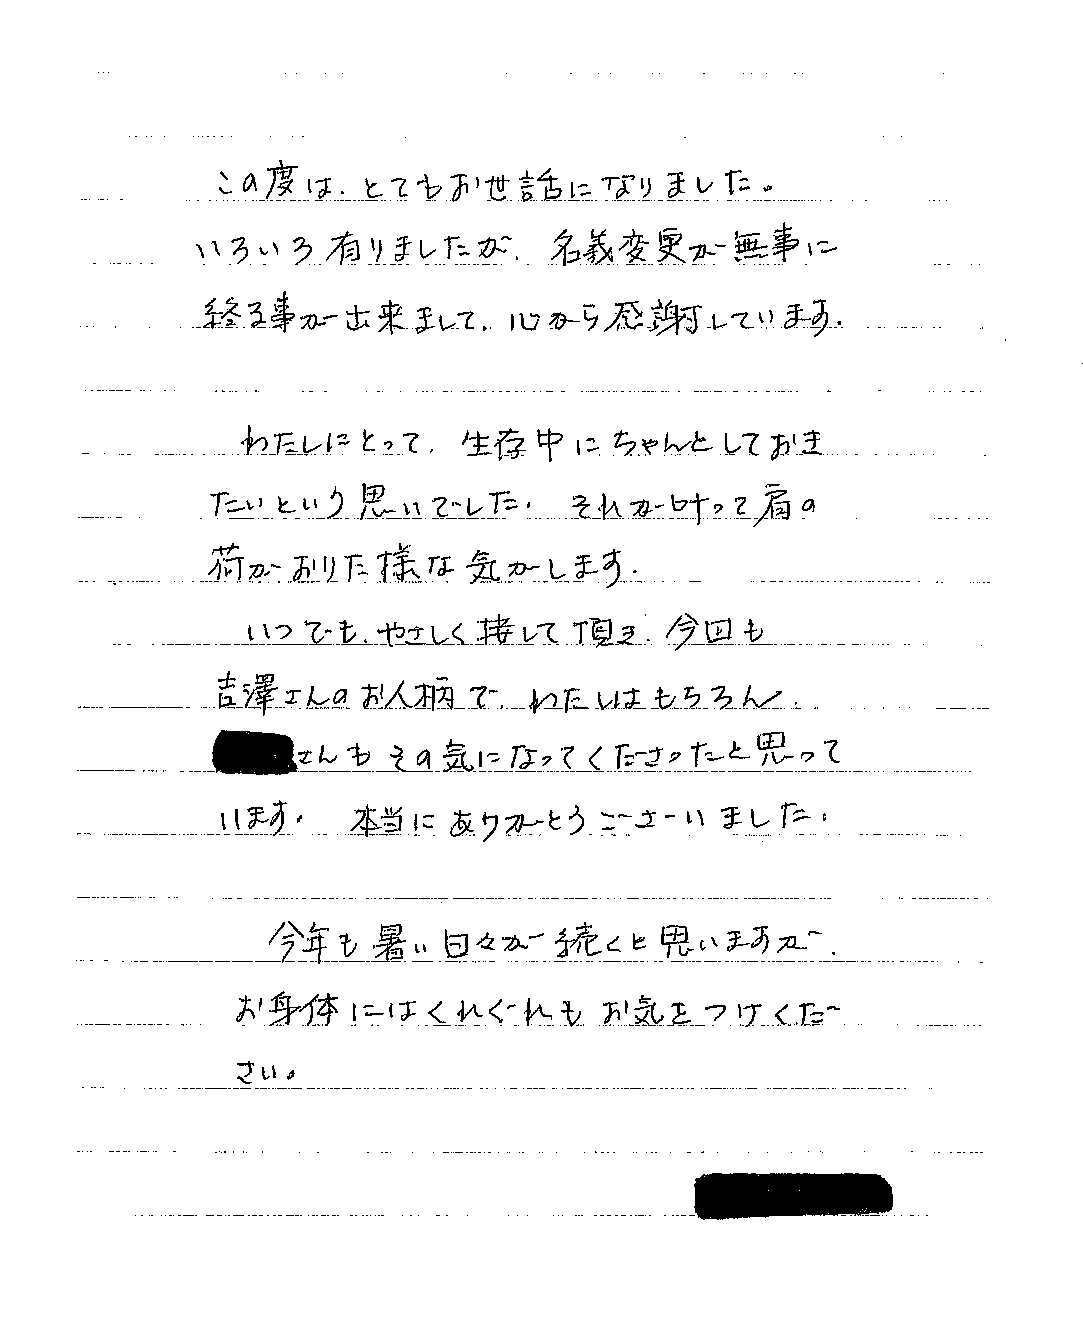 この度は、とてもお世話になりました。
いろいろ有りましたが、名義変更が無事に
終る事が出来まして、心から感謝しています。
わたしにとって、生存中にちゃんとしておき
たいという思いでした。それが叶って肩の
荷がおりた様な気がします。
いつでも、やさしく接して頂き、今回も
吉澤さんのお人柄で、わたしはもちろん、
さんもその気になってくださったと思って
います。本当にありがとうございました。
今年も暑い日々が続くと思いますが、
お身体にはくれぐれもお気をつけくだ
さい。